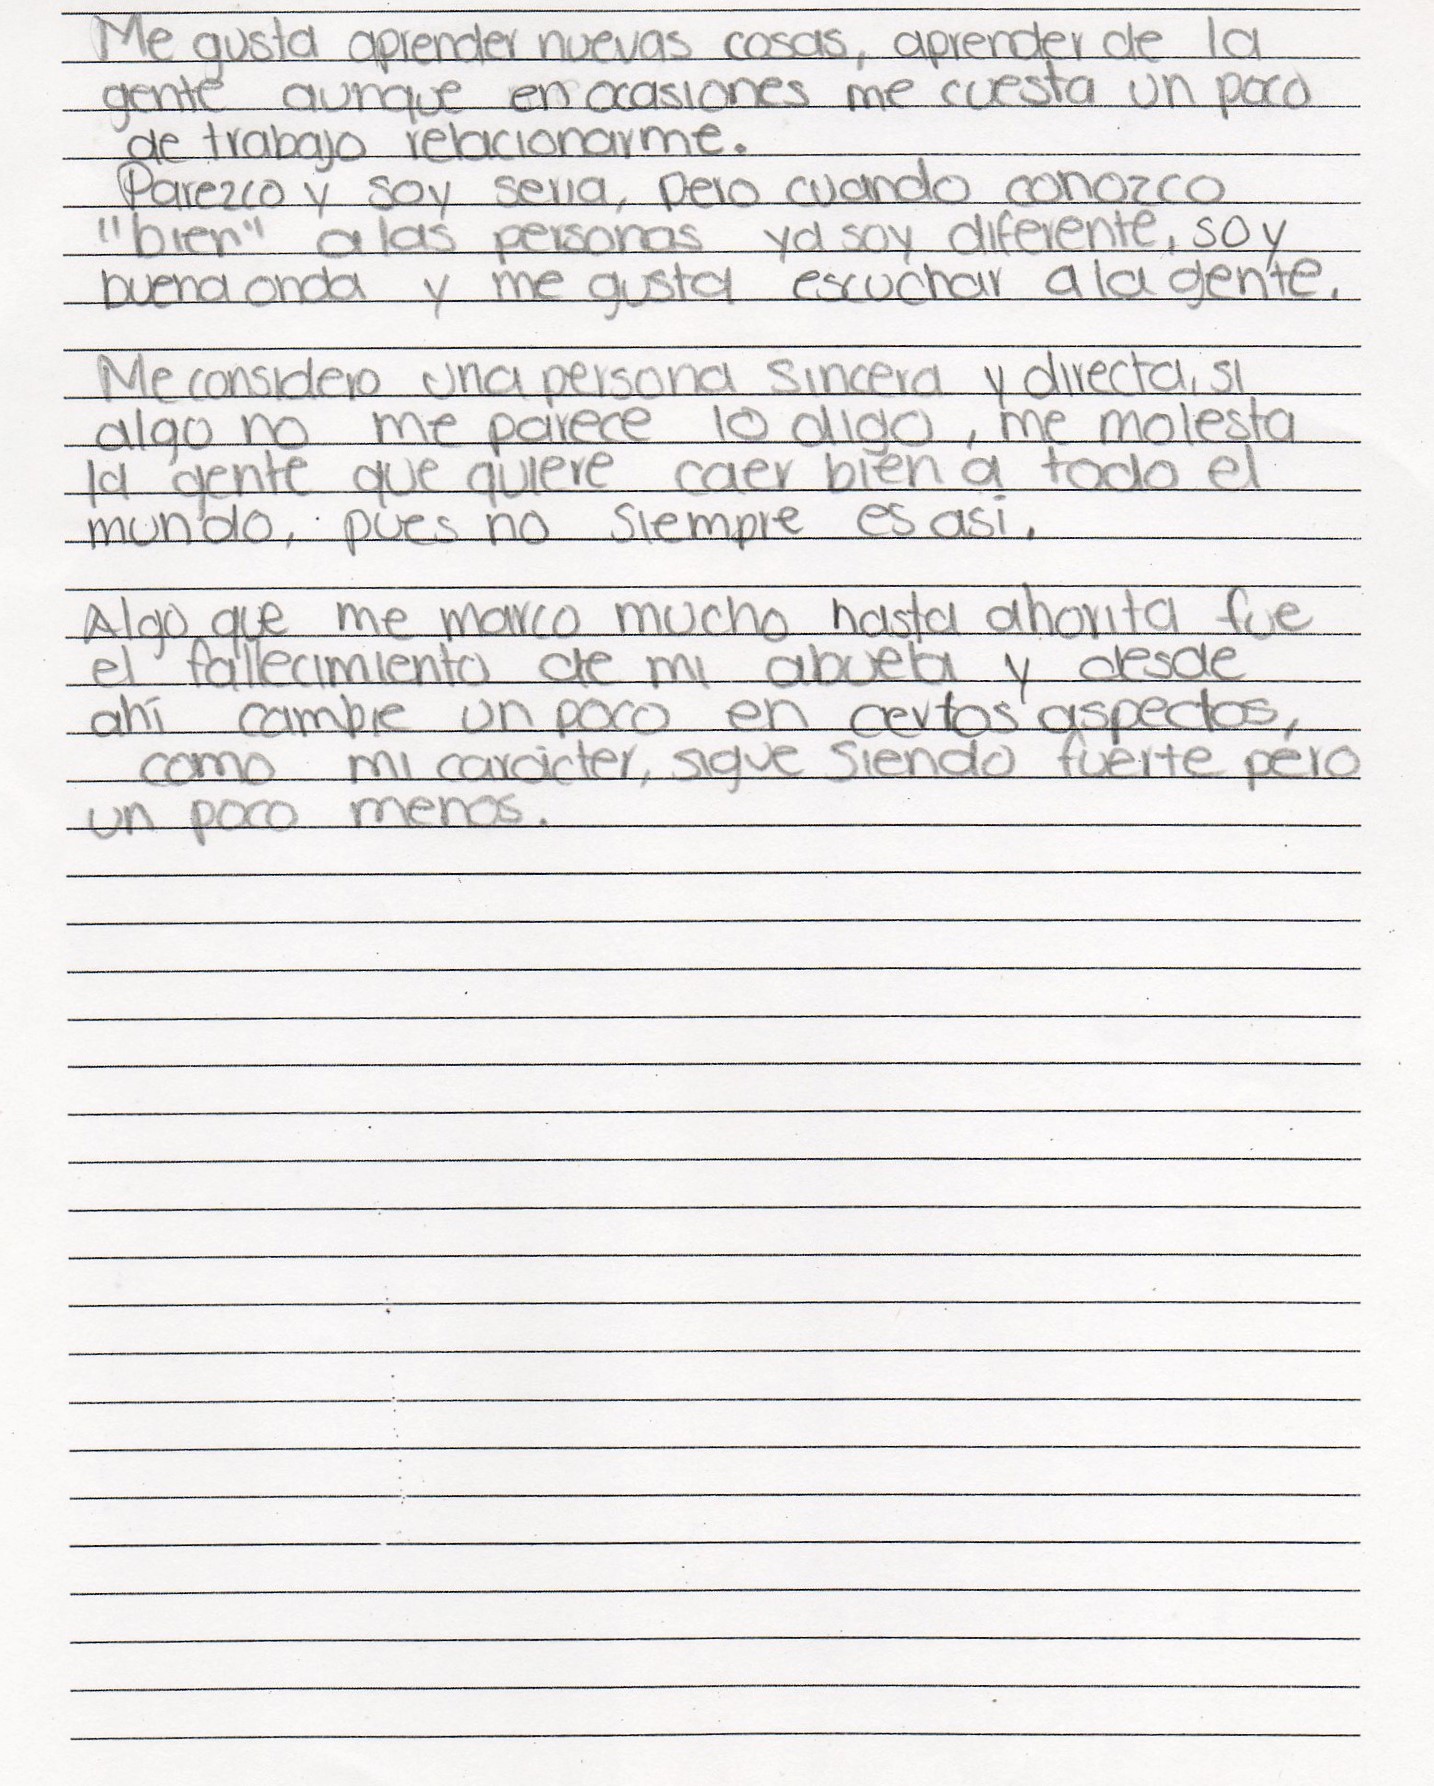 Me gusta aprender nuevas cosas, aprender de la
gente aunque en ocasiones me cuesta un poco
de trabajo relacionarme.
Parezco y soy seria, pero cuando conozco
"bien" a las personas ya soy diferente, soy
buena onda y me gusta escuchar a la gente.
Me considero una persona sincera y directa, si
algo no me parece lo digo, me molesta
la gente que quiere caer bien a todo el
mundo, pues no siempre es asi.
Algo que me marco mucho hasta ahorita fue
el fallecimiento de mi abuela y desde
ahí cambie un poco en certos aspectos,
como mi carácter, sigue siendo fuerte pero
un poco menos.